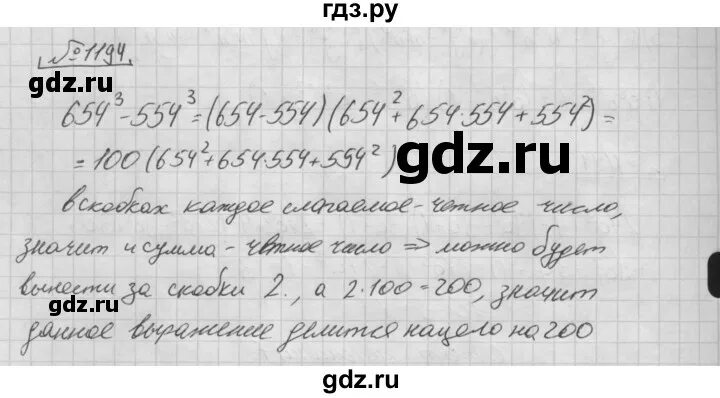 гдз.ру
№1194.
gdz.ru
654³-554³=(654-554)(654²+654·554+554²)=
=100(654²+654·554+554²)
gdz.ru
в скобках каждое слагаемое-четное число,
значит и сумма-четное число ⇒ можно будет
вынести за скобки 2., а 2·100=200, значит
gdz.ru
данное выражение делится нацело на 200
gdz.ru